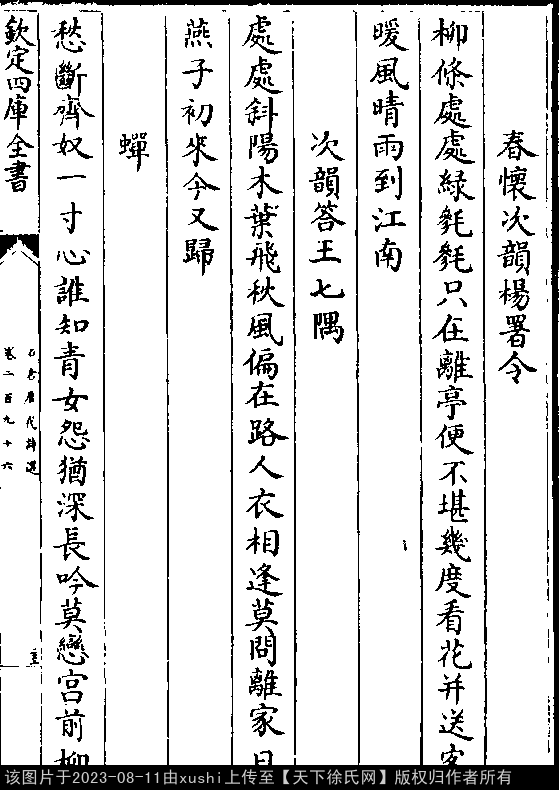 春懷次韻楊署令
柳條處處緑毿毿只在離亭便不堪幾度看花并送客
暖風晴雨到江南
次韻答王七隅
處處斜陽木葉飛秋風偏在路人衣相逢莫問離家日
燕子初來今又歸
蟬
愁斷齊奴一寸心誰知青女怨猶深長吟莫戀宫前柳
欽定四庫全書
卷二百九十六
该图片于2023-08-11由xushi上传至【天下徐氏网】版权归作者所有